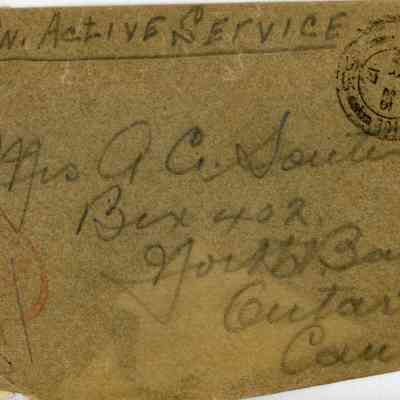 N. ACTIVE SERVICE
Mrs A C. 
Box 402.
North Ba
Ontar
Can